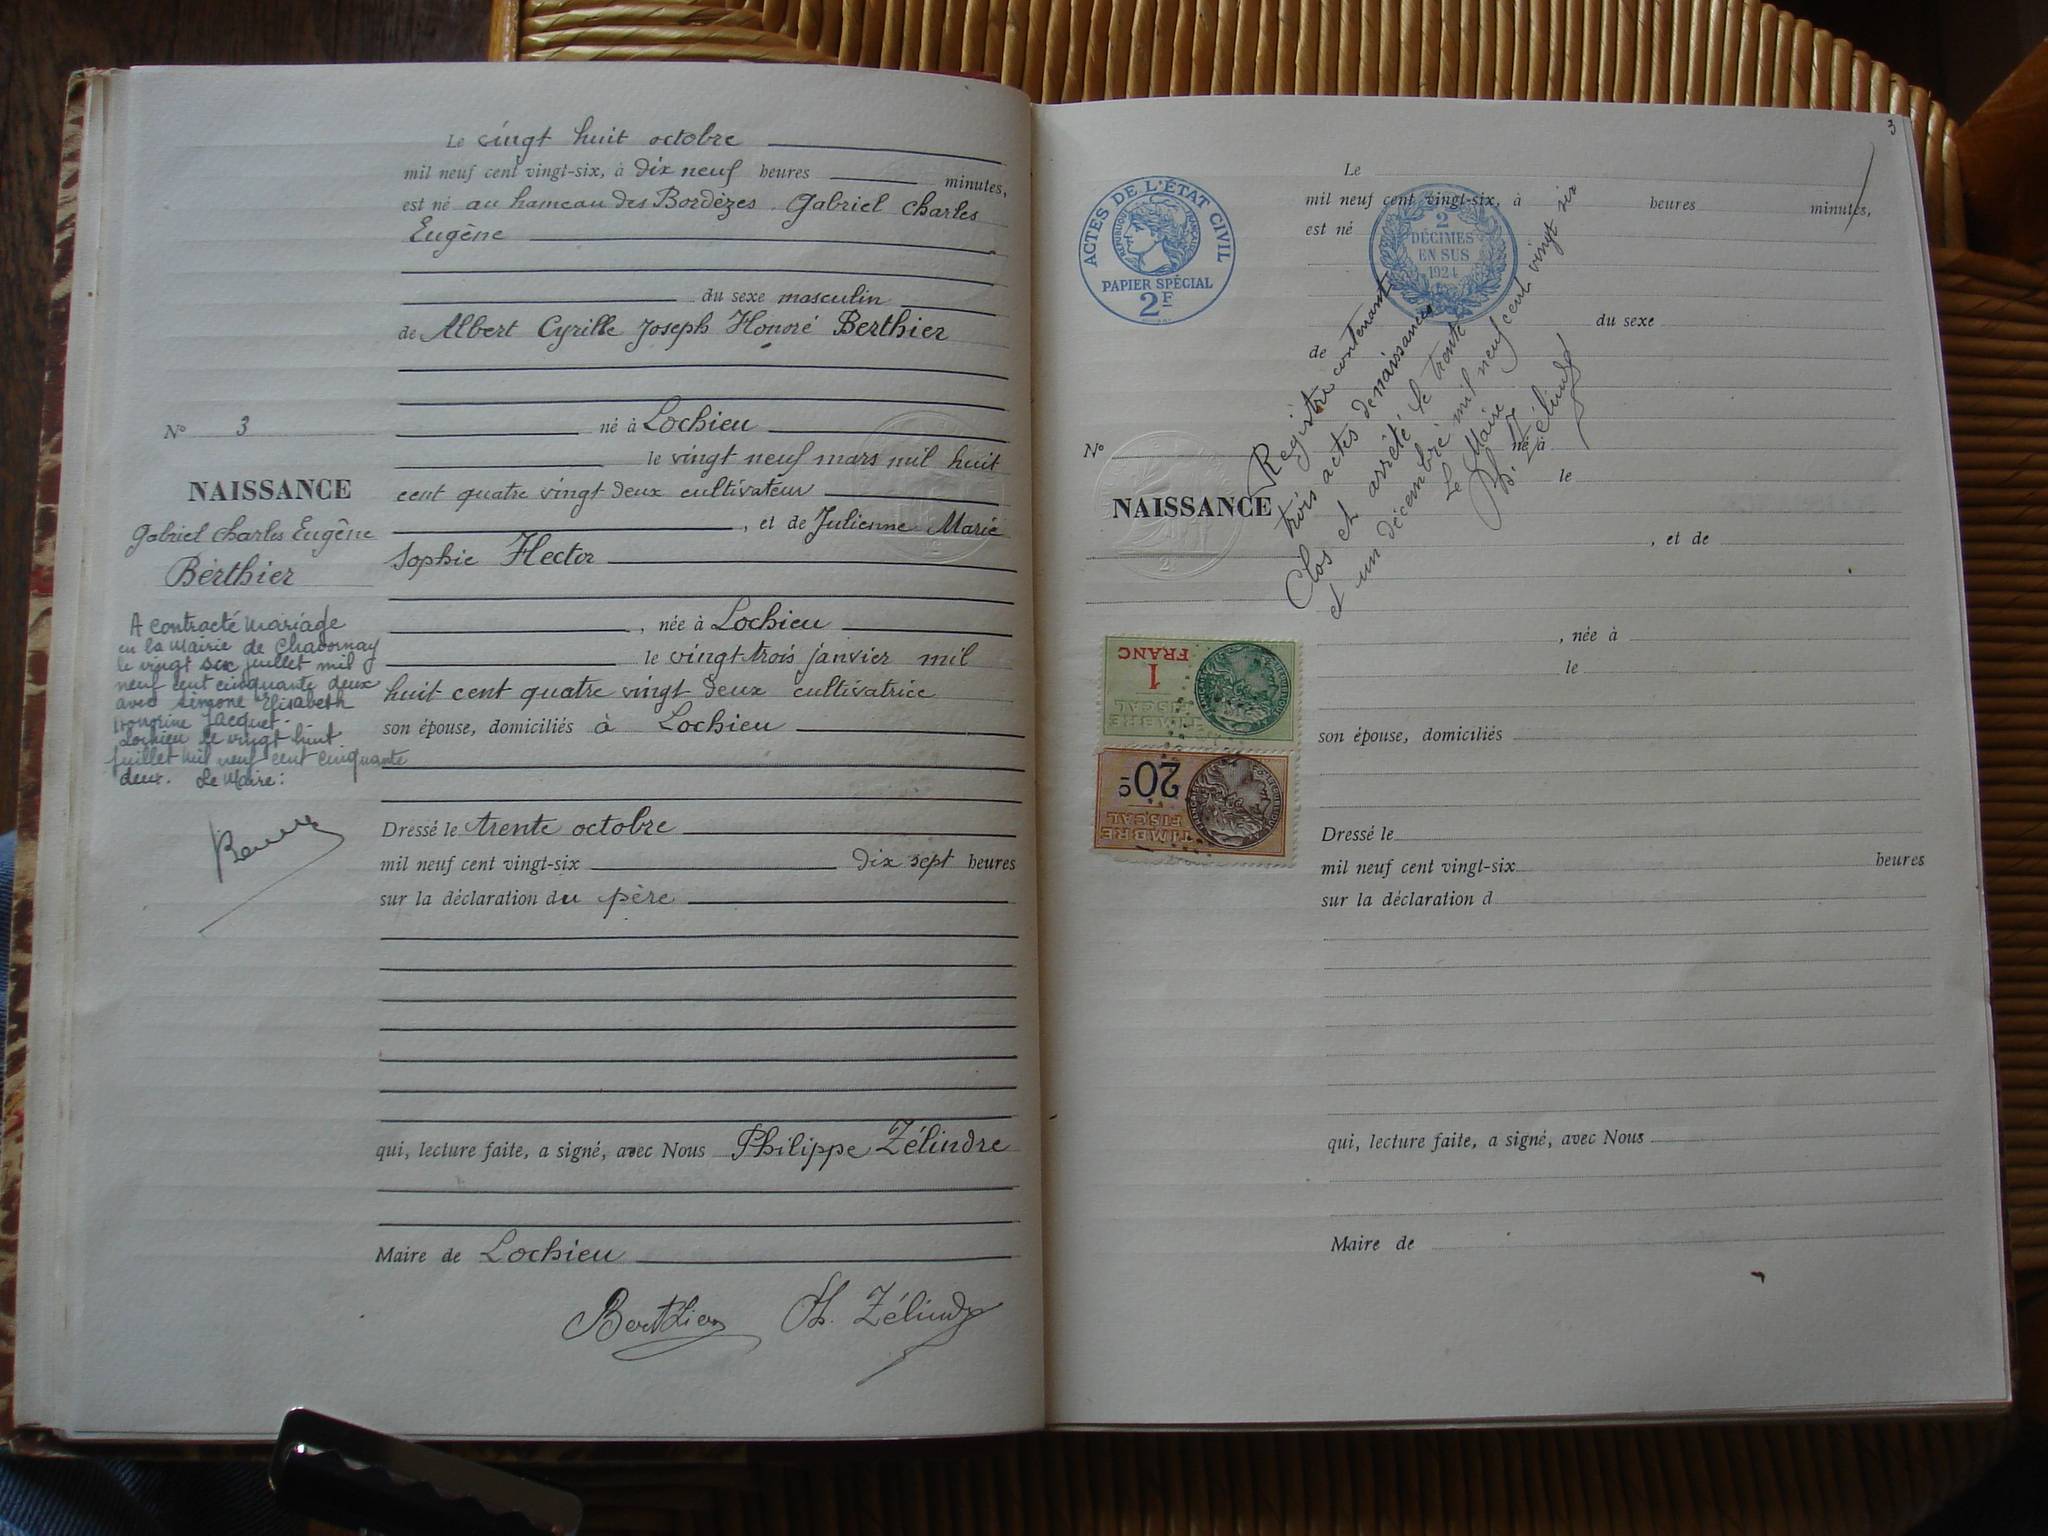 Le vingt huit octobre
mil neuf cent vingt-six, à dix neuf heures minutes,
est né au hameau des Bordèzes Gabriel Charles
Eugène
du sexe masculin
de Albert Cyrille Joseph Honoré Berthier
né à Lochieu
le vingt neuf mars mil huit
cent quatre vingt deux cultivateur
, et de Julienne Marie
Sophie Hector
, née à Lochieu
le vingt trois janvier mil
huit cent quatre vingt deux cultivatrice
son épouse, domiciliés à Lochieu
Dressé le trente octobre
mil neuf cent vingt-six dix sept heures
sur la déclaration du père
qui, lecture faite, a signé, avec Nous Philippe Zélindre
Maire de Lochieu
Berthier Ph. Zélindre
No 3
NAISSANCE
Gabriel Charles Eugène
Berthier
A contracté mariage
en la Mairie de Chavornay
le vingt six juillet mil
neuf cent cinquante deux
avec Simone Elisabeth
Honorine Jacquet.
Lochieu le vingt huit
juillet mil neuf cent cinquante
deux. Le Maire:
3
Le
mil neuf cent vingt-six, à heures minutes,
est né
du sexe
de
né à
le
, et de
, née à
le
son épouse, domiciliés
Dressé le
mil neuf cent vingt-six heures
sur la déclaration d
qui, lecture faite, a signé, avec Nous
Maire de
No
NAISSANCE
ACTES DE L'ÉTAT CIVIL
RÉPUBLIQUE FRANÇAISE
PAPIER SPÉCIAL
2F
2
DÉCIMES
EN SUS
1924
Registre contenant
trois actes de naissance
Clos et arrêté le trente
et un décembre mil neuf cent vingt six
Le Maire
Ph. Zélindre
1
FRANC
TIMBRE
FISCAL
20c
TIMBRE
FISCAL